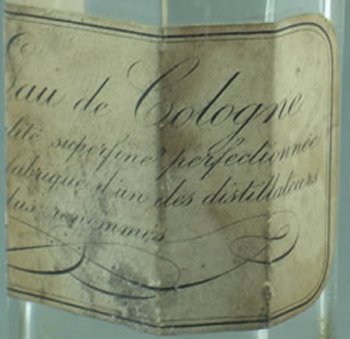 Eau de Cologne
lité superfine perfectionnée
fabrique d'un des distillateurs
plus renommés